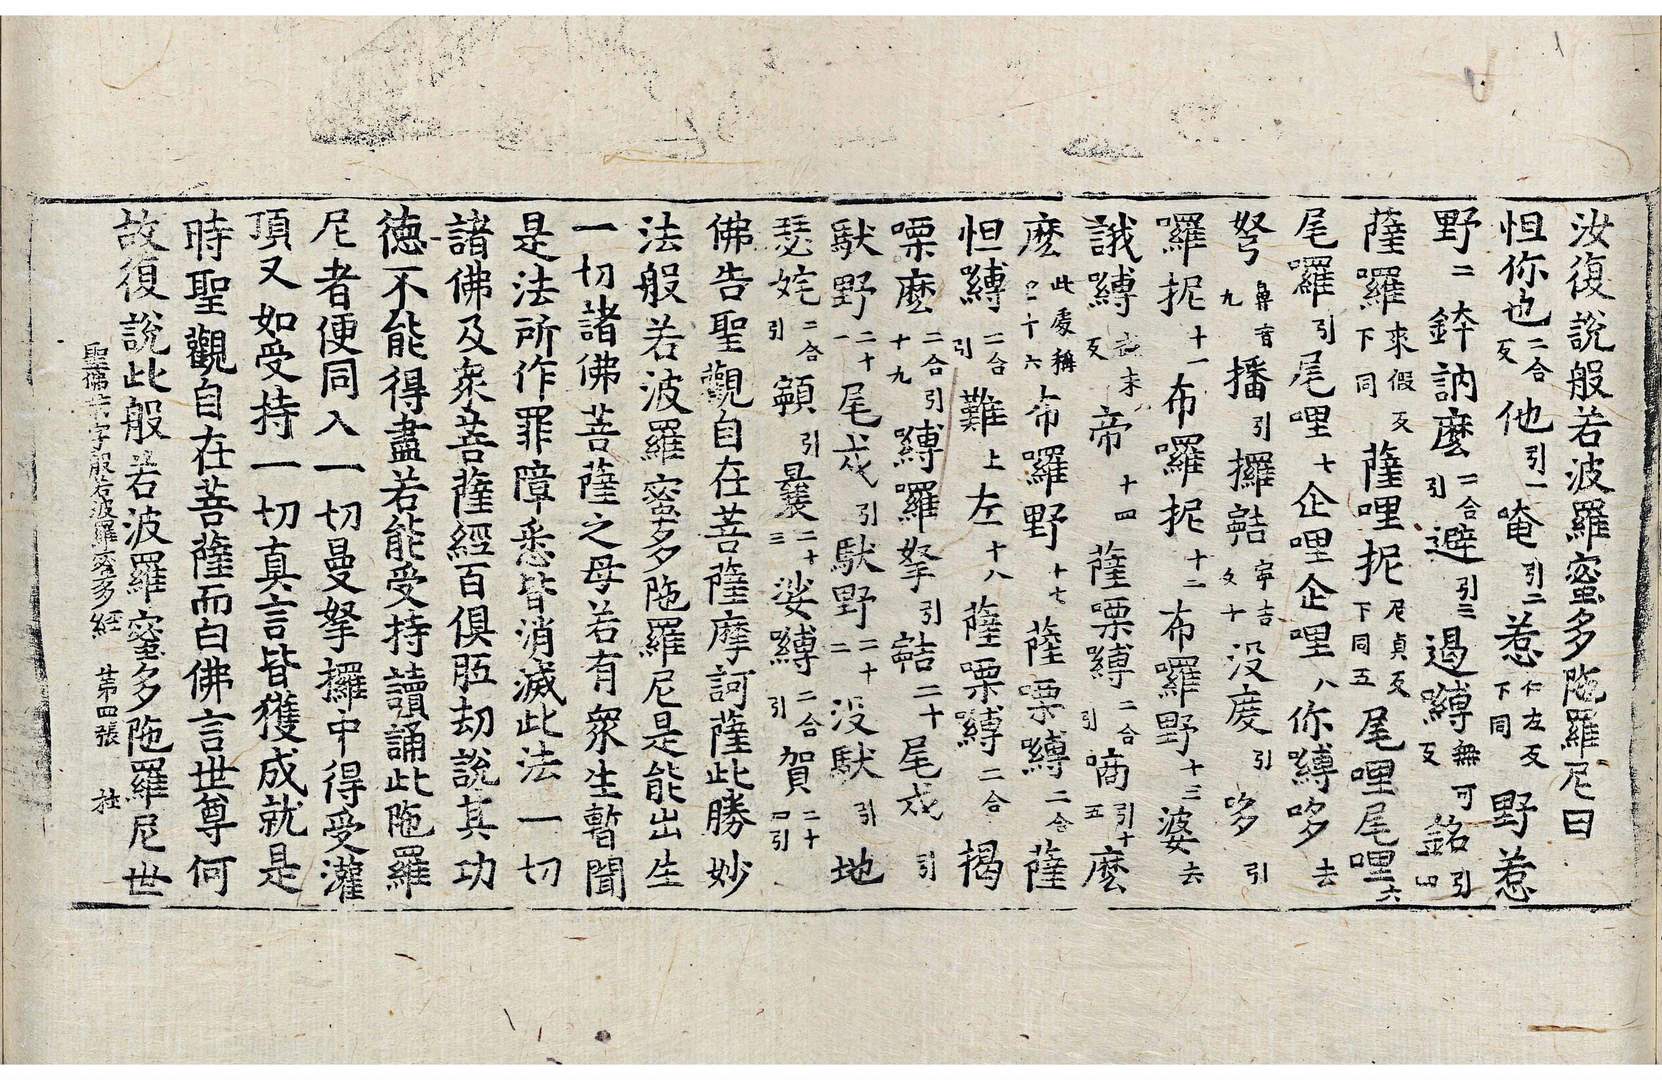 汝復說般若波羅蜜多陁羅尼曰
怛你也二合反他引一唵引二惹仁左反下同野惹
野二鉢訥麽二合引避引三遏嚩無可反銘引四
薩囉來假反下同薩哩抳尼貞反下同五尾哩尾哩六
尾囉引尾哩七企哩企哩八你嚩哆去
弩鼻音九播引攞䛿寧吉反十没度引哆引
囉抳十一布囉抳十二布囉野十三婆去
誐嚩反帝十四薩㗚嚩二合引啇引十五麽
麽此處稱十六布囉野十七薩㗚嚩二合薩
怛嚩二合引難上左十八薩㗚嚩二合揭
㗚麽二合引十九嚩囉拏引䛿二十尾戍引
馱野二十一尾戍引馱野二十二没馱引地
瑟姹二合引顙引曩二十三娑嚩二合引賀二十四引
佛告聖觀自在菩薩摩訶薩此勝妙
法般若波羅蜜多陁羅尼是能出生
一切諸佛菩薩之母若有衆生暫聞
是法所作罪障悉皆消滅此法一切
諸佛及衆菩薩經百俱胝劫說其功
德不能得盡若能受持讀誦此陁羅
尼者便同入一切曼拏攞中得受灌
頂又如受持一切真言皆獲成就是
時聖觀自在菩薩而白佛言世尊何
故復說此般若波羅蜜多陁羅尼世
聖佛母小字般若波羅蜜多經 第四張 杜